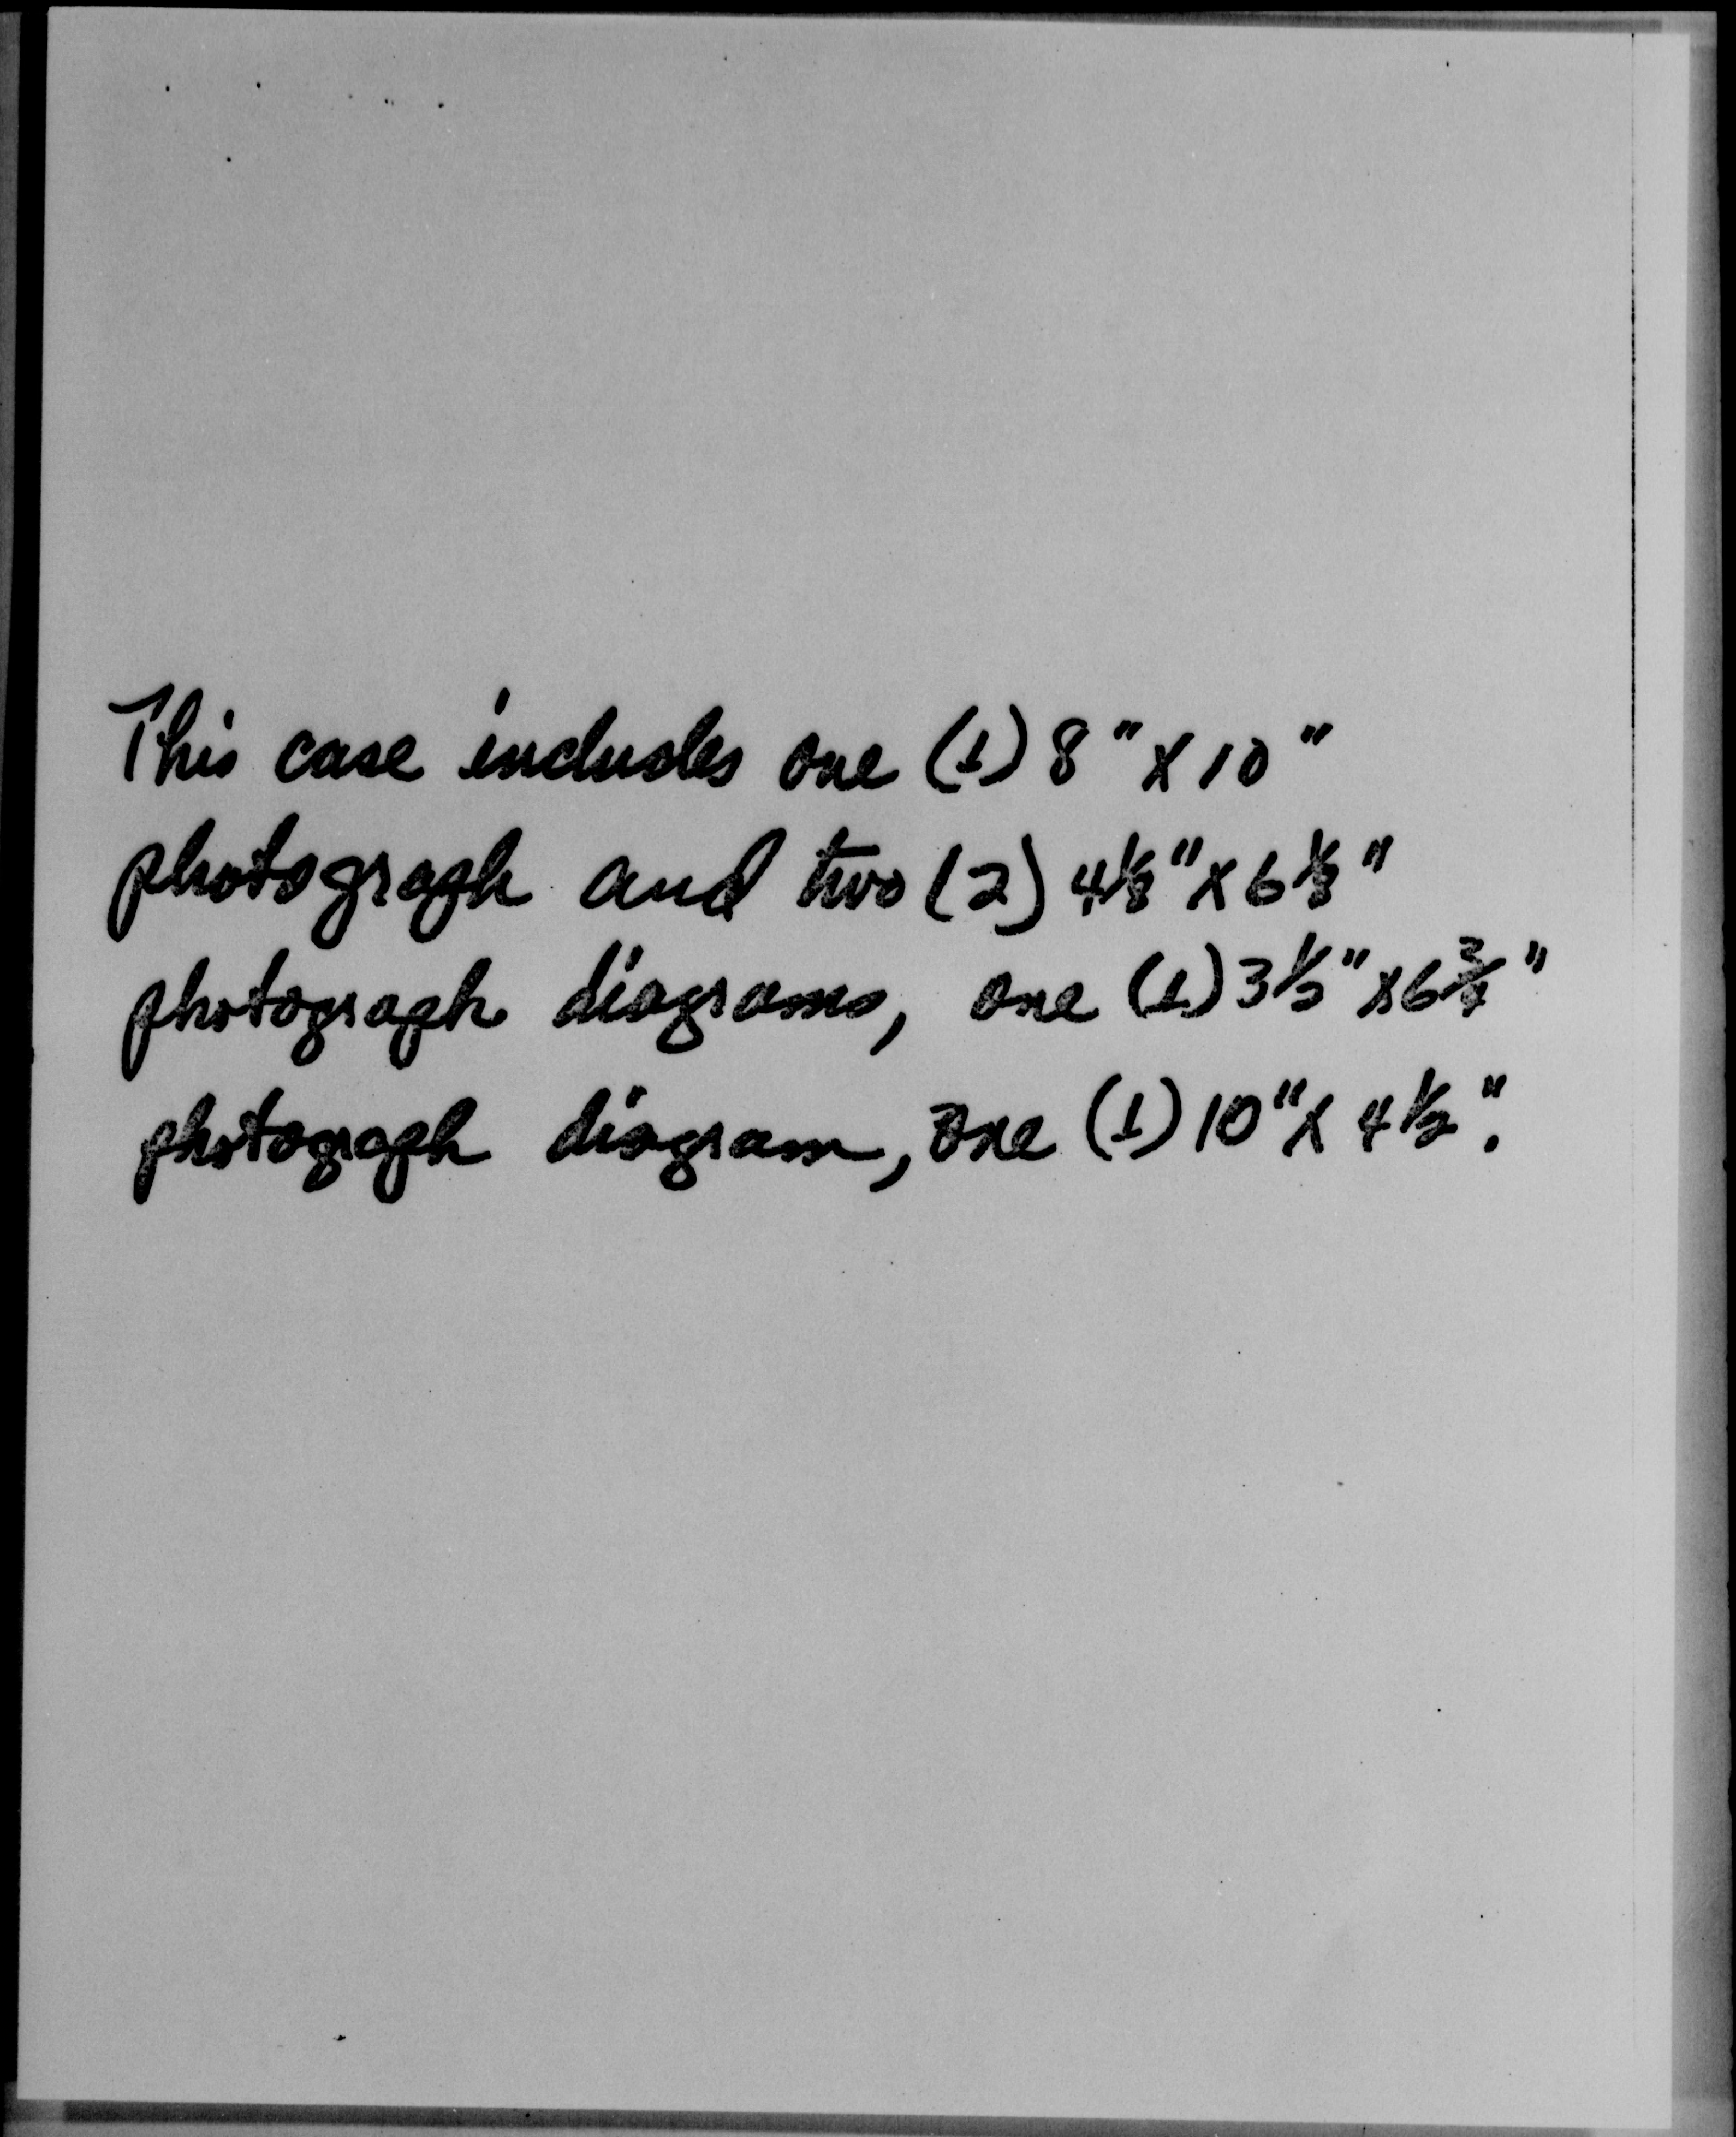 This case includes one (1) 8" X 10"
photograph and two (2) 4 1/8" X 6 1/8"
photograph diagrams, one (1) 3 1/2" X 6 3/4"
photograph diagram, one (1) 10" X 4 1/2".